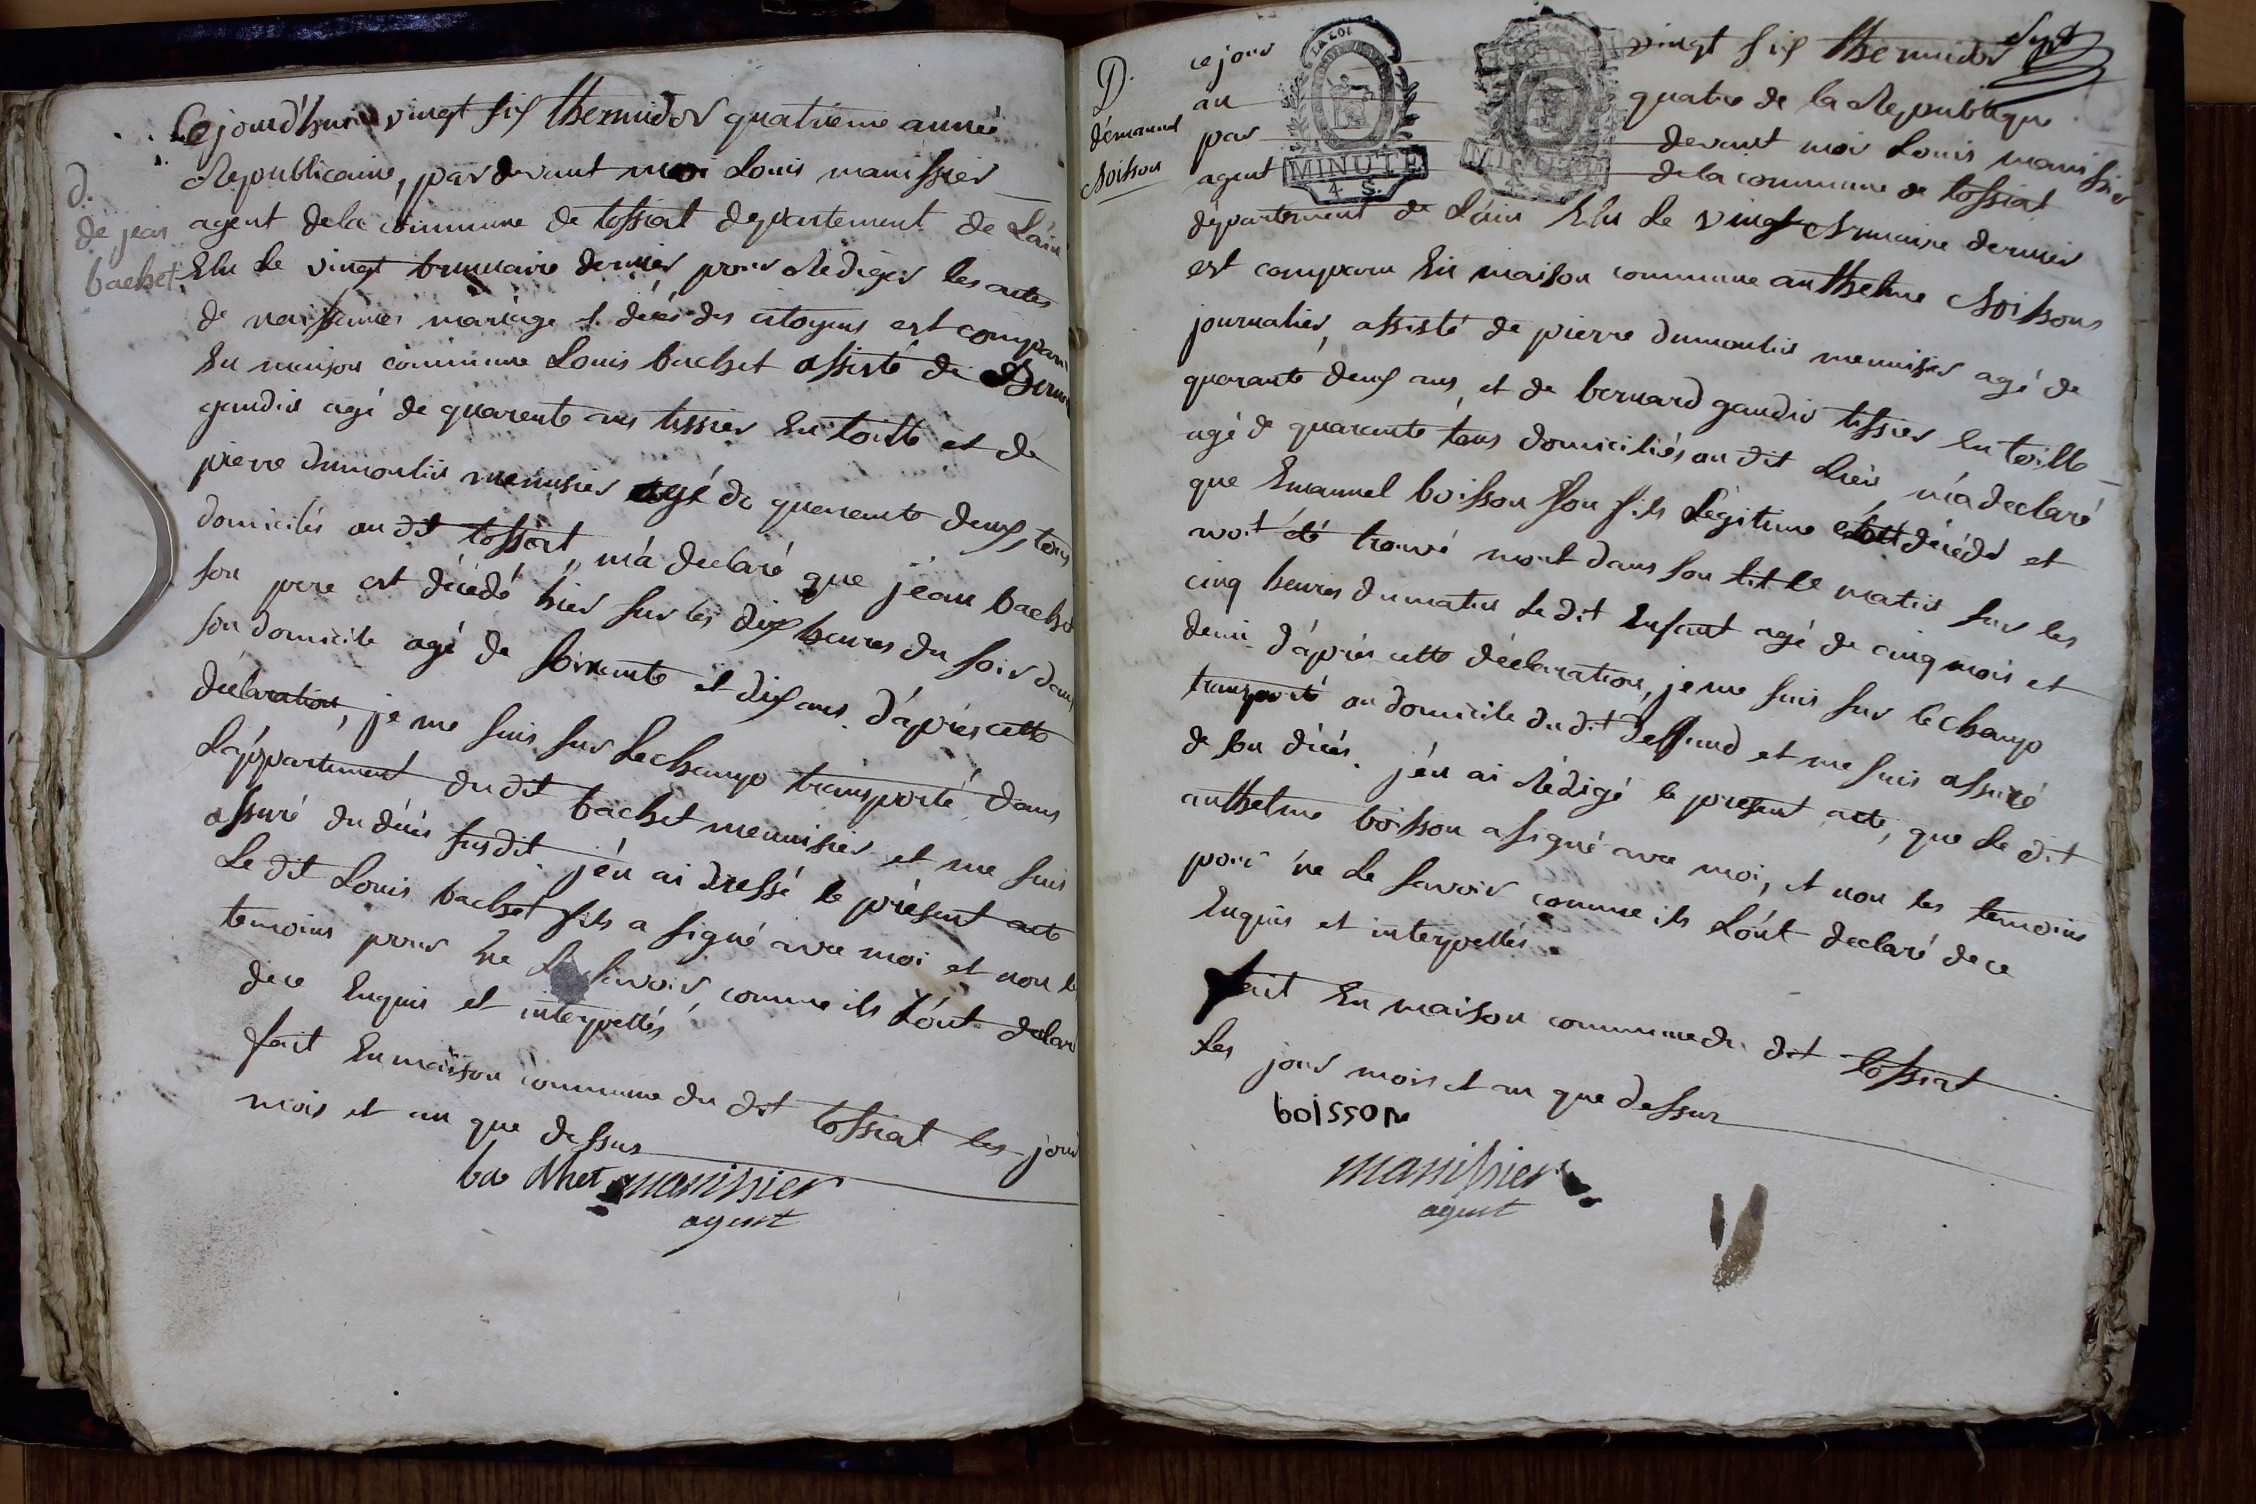 d.
de jean
bachet
Cejourd'hui vingt six thermidor quatrieme année
Republicaine, pardevant moi Louis manissier
agent dela commune de tossiat departement de L'ain
Elu le vingt brumaire dernier pour Rediger les actes
de naissances mariage et décés des citoyens est comparu
En maison commune Louis bachet assisté de
gaudin agé de quarente ans tissier En toille et de
pierre dumoulin menusier agé de quarente deux, tous
domiciliés au dit tossiat, m'a declaré que jean bachet
son pere est décédé hier sur les dix heures du soir dans
son domicile agé de soixante et dix ans. d'aprés cette
declaration, je me suis sur lechamp transporté dans
L'appartement du dit bachet menuisier et me suis
assuré du décés susdit j'en ai dressé le présent acte
Le dit Louis bachet fils a signé avec moi et non les
temoins pour ne Le savoir, comme ils L'ont declaré
dece Enquis et interpellés
fait En maison commune du dit tossiat les jour
mois et an que dessus
bachet manissier
agent
D.
démanuel
Boisson
ce jour vingt six thermidor
an quatre de la Republique
par devant moi Louis manissier
agent dela commune de tossiat
LA LOI
MINUTE
4. S.
MINUTE
4. S.
département de L'ain Elu Le vingt Brumaire dernier
est comparu En maison commune anthelme Boisson
journalier, assisté de pierre dumoulin menuisier agé de
quarante deux ans, et de bernard gaudin tissier En toille
agé de quarante tous domiciliés au dit Lieu, m'a declaré
que Emanuel boisson son fils Légitime étoit décédé et
avoit été trouvé mort dans son lit le matin sur les
cinq heures du matin Le dit Enfant agé de cinq mois et
demi. d'aprés cette déclaration, je me suis sur lechamp
transporté au domicile du dit deffund et me suis assuré
de son décés. j'en ai Rédigé le present acte, que Le dit
anthelme boisson a signé avec moi, et non les temoins
pour ne Le savoir comme ils L'ont declaré dece
Enquis et interpellés.
fait En maison commune du dit tossiat
Les jour mois et an que dessus
boisson
manissier
agent